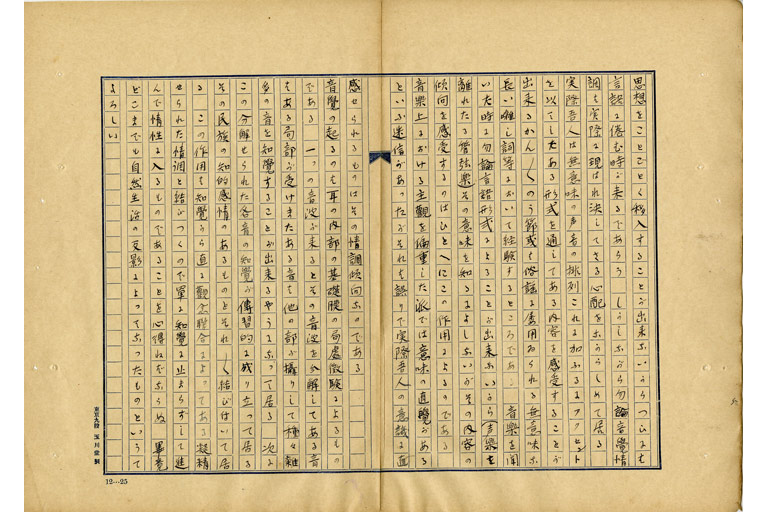 思想をことごとく移入することが出来ないからつひにも
言語に倦む時が来るであらう しかしながら勿論音覚情
調も実際に現はれ決してさる心配をなからしめて居る
実際吾人は無意味の声音の排列これに加ふるアクセント
を以てしたある形式を通してある内容を感受することが
出来るかん〳〵のう節或は俗謡に屡用ゐられる無意味な
長い囃し詞等において経験するところであ 音楽を聞
いた時は勿論言語形式によることが出来ないから声楽を
離れたる管弦楽その意味を知るよしもないがその内容の
傾向を感受するのはひとへにこの作用によるのである
音楽上における主観を偏重した派では意味の直覚がある
といふ迷信があつたがそれは誤りで実際吾人の意識に直
感せられるものはその情調傾向なのである
音覚の起るのも耳の内部の基礎膜の局処徴験によるもの
である 一つの音波が来るとその音波を分解してある音
はある局部が受けまたある音は他の部が攝りして種々雑
多の音を知覚することが出来るやうになつて居る 次に
この分解せられた各音の知覚が伝習的に成り立つて居る
その民族の知的感情のあるものとそれ〳〵結びついて居
る この作用は知覚から直に観念聯合によつてある凝精
せられた情調と結びつくので単に知覚に止まらずして進
んで情性に入るものであることを心得ねばならぬ 畢竟
どこまでも自然主汝の反影によつてなつたものといつて
よろしい
東京九段 玉川堂製
12…25